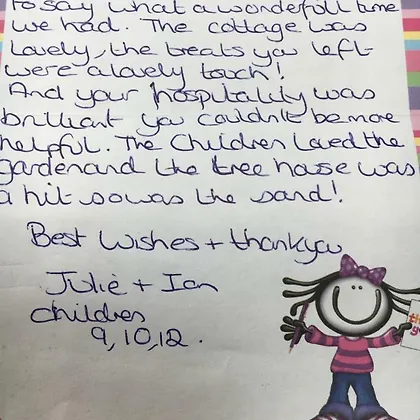 to say what a wonderfull time
we had. The cottage was
lovely, the treats you left
were a lovely touch!
And your hospitality was
brilliant you couldn't be more
helpful. The Children loved the
garden and the tree house was
a hit so was the sand!
Best Wishes + thankyou
Julie + Ian
children
9, 10, 12.